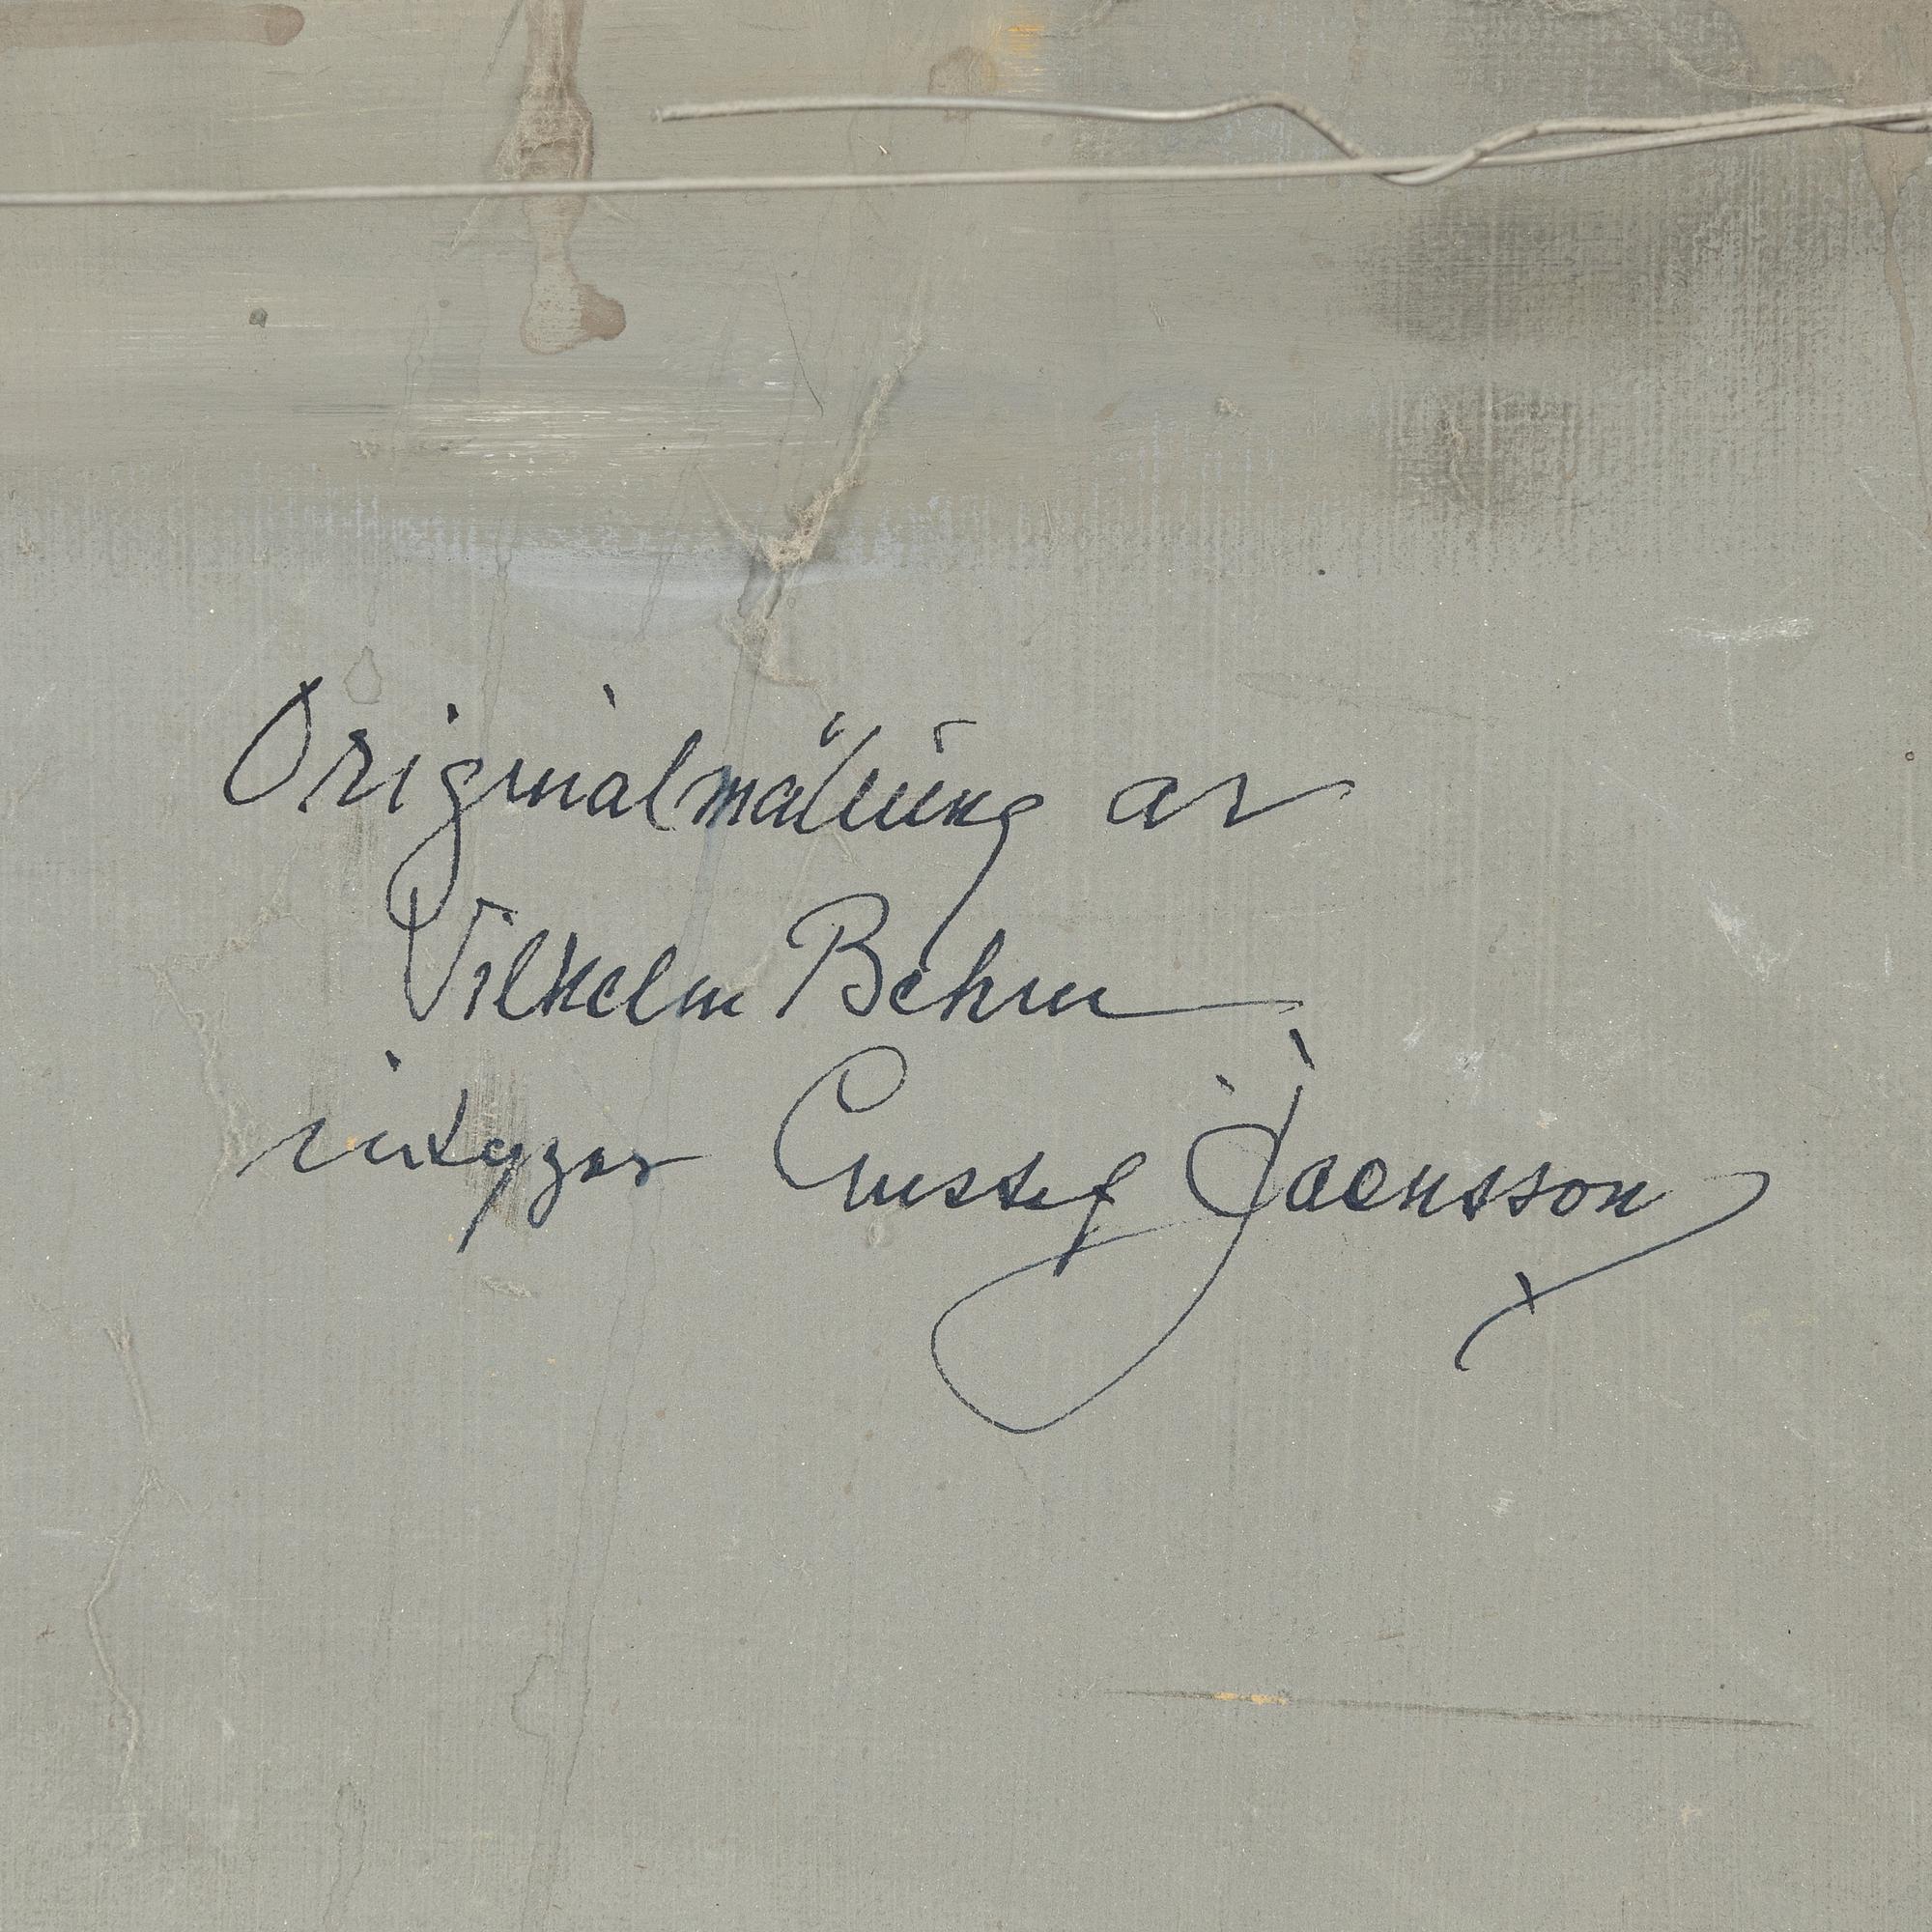 Originalmålning av
Vilhelm Behm
intygar Gustaf Jaensson